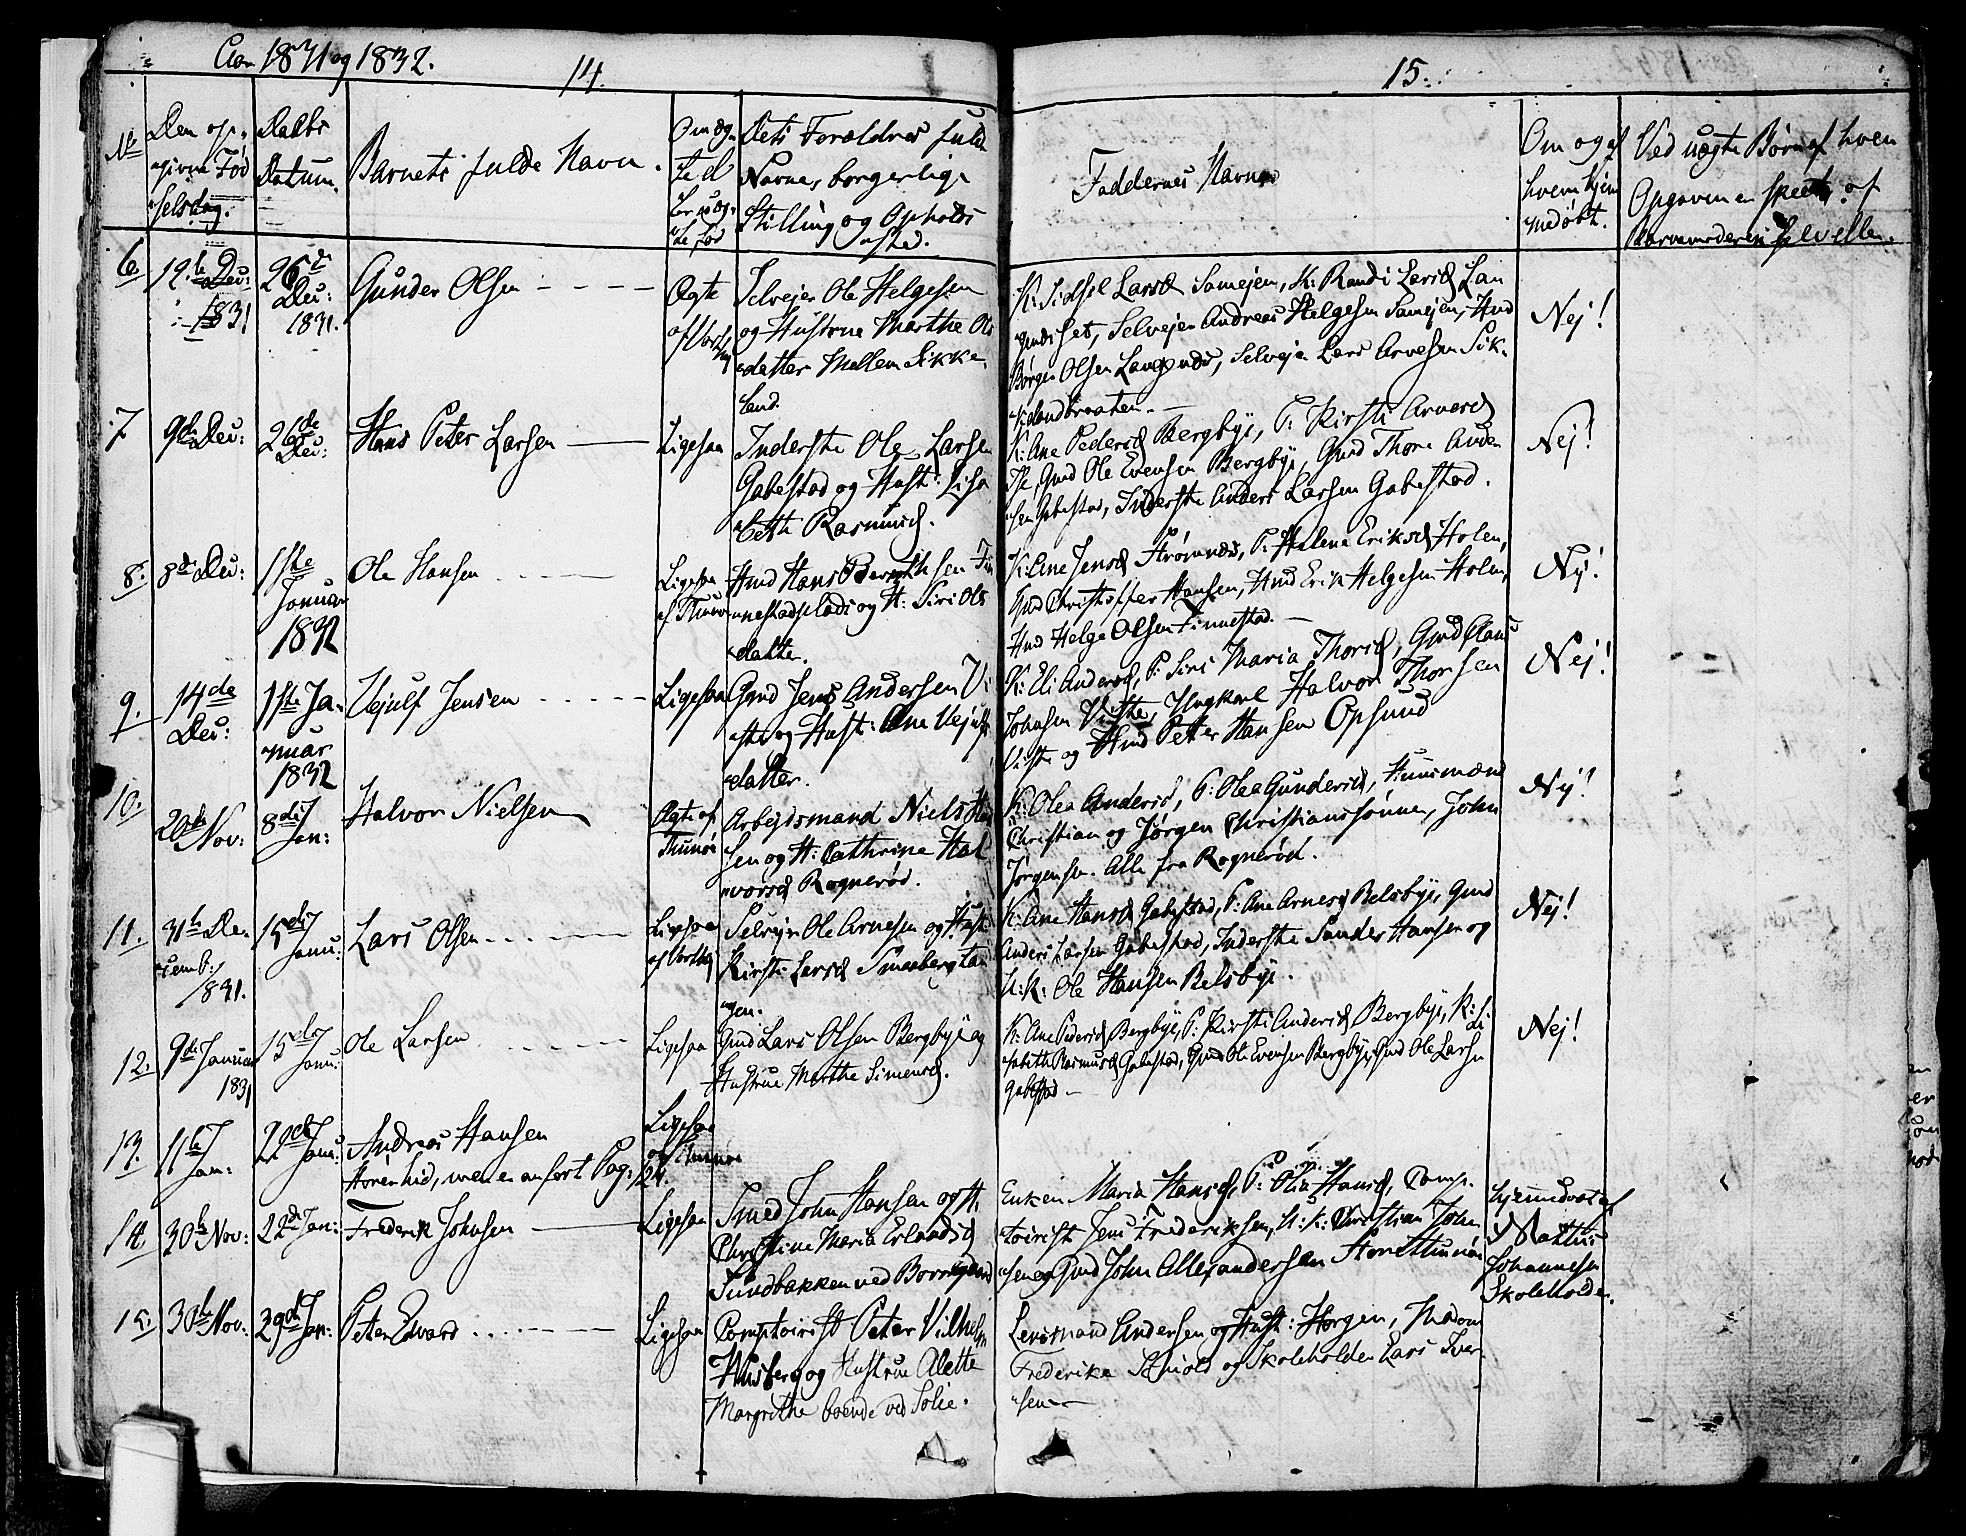 Aar 1831 og 1832.
14.
15.
No
Den op-
givne Fød
selsdag.
Daabs
Datum.
Barnets fulde Navn.
Om æg-
te el
ler uæg-
te fød
Dets Forældres fulde
Navne, borgerlige
Stilling og Opholds
sted.
Faddernes Navne
Om og af
hvem hjem
medøbt.
Ved uægte Børn af hvem
Opgaven er skeet, af
Barnemoderen selv eller
6.
12te Dec:
1831
26de
Dec:
1831.
Gunder Olsen
Ægte
af
Selvejer Ole Helgesen
og Hustrue Marthe Ols
datter Mellem Sikke
land.
K: Sidsel Larsd Somejen, K: Randi Larsd Lan
gnæsset, Selvejer Andreas Helgesen Somejen, Hmd
Børger Olsen Langnæs, Selvejer Lars Arvesen Sik-
kelandbraaten.
Nej!
7.
9de Dec:
26de
Dec:
Hans Peter Larsen
Ligesaa
Inderste Ole Larsen
Gabestad og Hust: Lisa
beth Rasmusd.
K: Ane Pedersd Bergbye, P: Kirsti Arvesd
Gmd Ole Evensen Bergbye, Gmd Thore Ander
sen Gabestad, Inderste Anders Larsen Gabestad.
Nej!
8.
8de Dec:
1ste
Januar
1832
Ole Hansen
Ligesaa
af Thunø
Hmd Hans Bernthsen Fin
nestadplads og H: Siri Ols
datter.
K: Ane Jensd Strømnæs, P: Helene Eriksd Holen,
Gmd Christopher Hansen, Hmd Erik Helgesen Holm,
Hmd Helge Olsen Finnestad.
Nej!
9.
14de
Dec:
1ste Ja-
nuar
1832
Vejulf Jensen
Ligesaa
Gmd Jens Andersen Vi
ste og Hust: Ane Vejulfs
datter.
K: Eli Andersd, P: Siri Maria Thorsd, Gmd Claus
Johnsen Viste, Ungkarl Halvor Thorsen
Viste og Hmd Petter Hansen Opsund
Nej!
10.
20de
Nov:
8de
Jan:
Halvor Nielsen
Ægte af
Thunø
Arbejdsmand Niels Han
sen og H: Cathrine Hal
vorsd Rognerød.
K: Olea Andersd, P: Olea Gundersd, Huusmænd
Christian og Jørgen Christianssønner, John
Jørgensen. Alle fra Rognerød.
Nej!
11.
31te De-
cemb:
1831.
15de
Janu:
Lars Olsen
Ligesaa
af
Selvejer Ole Arnesen og Hust:
Kirsti Larsd Smaaberg tan
gen.
K: Ane Hansd Gabestad, P: Ane Arnesd Belsbye, Gmd
Anders Larsen Gabestad, Inderste Sander Hansen og
U: K: Ole Hansen Belsbye.
Nej!
12.
9de Januar
1831
15de
Janu:
Ole Larsen
Ligesaa
Gmd Lars Olsen Bergbye og
Hustrue Marthe Simensd.
K: Ane Pedersd Bergbye, P: Kirsti Andersd Bergbye, K: Li-
sabeth Rasmusd Gabestad, Gmd Ole Evensen Bergbye, Gmd Ole Larsen
Gabestad
Nej!
13.
11te
Jan:
22de
Janu:
Andreas Hansen
Hører hid, men er anført Pag: 124.
Ligesaa
af Thunø
14.
30te Nov:
22de Jan:
Frederik Johnsen
Ligesaa
Smed John Hansen og H.
Christine Maria Erlandsd
Sundbakken ved Borregaard
Enken Maria Hansd, P: Olia Hansd, Comp-
toirist Jens Frederiksen, U: K: Christian John
sen og Gmd John Allexandersen
hjemmedøbt af
Mathis
Johannesen
Skoleholder.
15.
30te Nov:
29de Jan:
Peter Edvard
Ligesaa
Comptoirist Peter Vilhelm
og Hustrue Alette
Margrethe boende ved Solie.
Lensmand Andersen og Hust: Horgen, Madm
Frederike og Skoleholder Lars Iver
sen